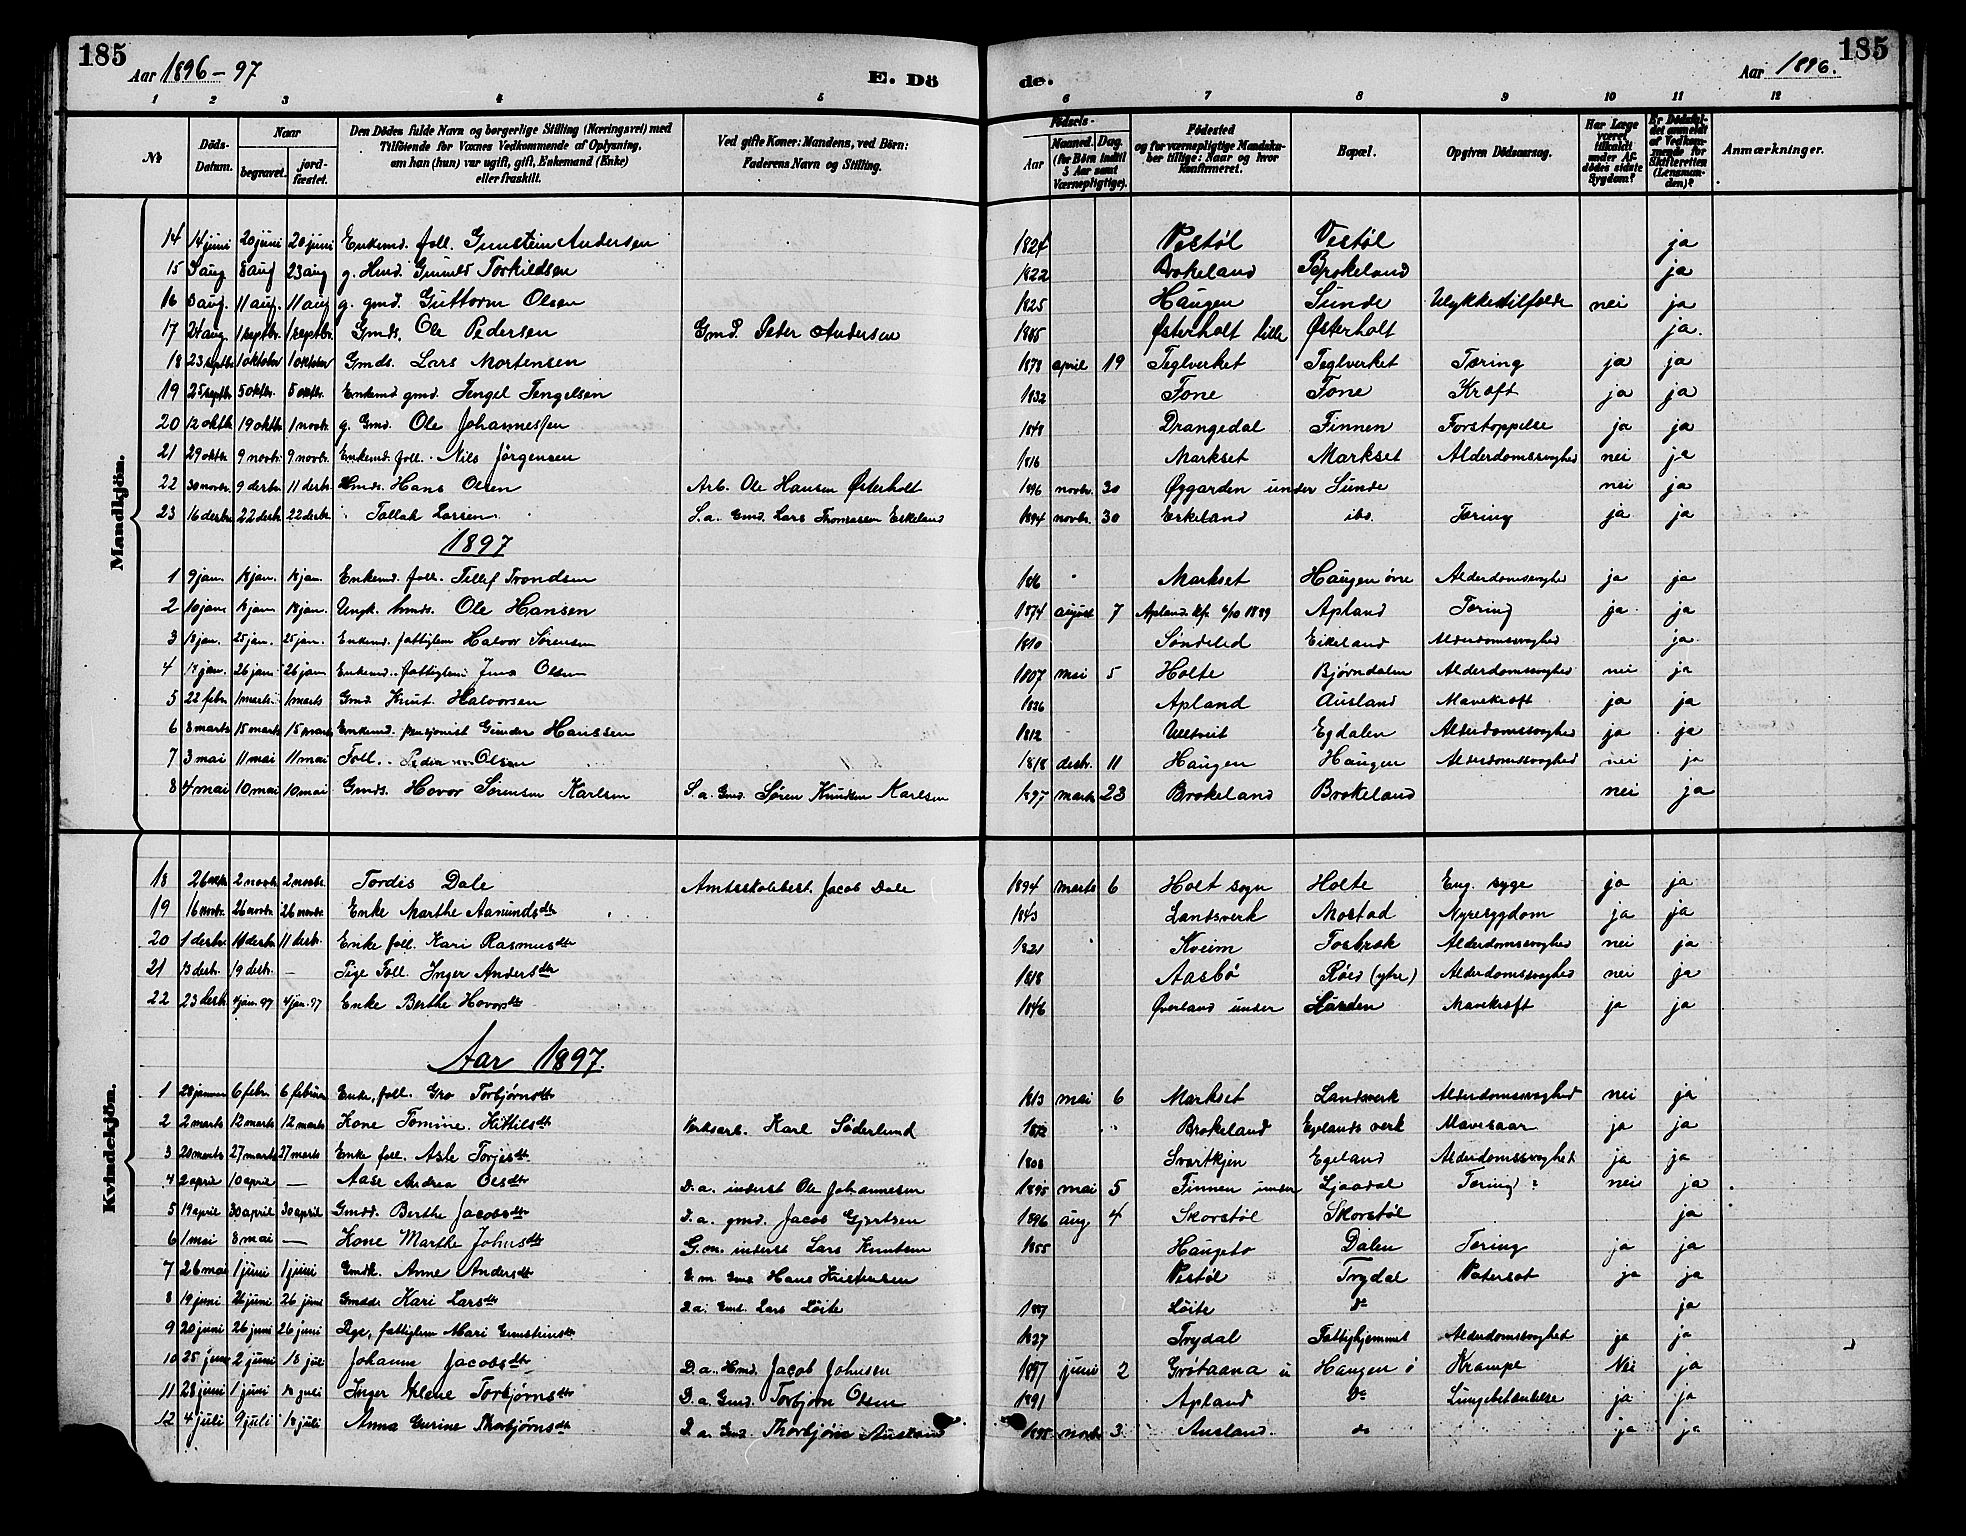 185
Aar 1896-97
E. Dö
de.
Aar 1896.
185
1 2 3 4 5 6 7 8 9 10 11 12
№
Döds-Datum.
Naar
begravet.
jordfæstet.
Den Dödes fulde Navn og borgerlige Stilling (Næringsvei) med Tilföiende for Voxnes Vedkommende af Oplysning, om han (hun) var ugift, gift, Enkemand (Enke) eller fraskilt.
Ved gifte Koner: Mandens, ved Börn: Faderens Navn og Stilling.
Födsels-
Aar
Maaned. Dag.
(for Börn indtil 5 Aar samt Værnepligtige).
Födested og for værnepligtige Mandskaber tillige: Naar og hvor konfirmeret.
Bopæl.
Opgiven Dödsaarsag.
Har Læge været tilkaldt under Afdödes sidste Sygdom?
Er Dödsfaldet anmeldt af Vedkommende for Skifteretten (Lensmanden)?
Anmærkninger.
Mandkjön.
14 14 juni 20 juni 20 juni Enkemd. foll. Gunstein Andersen 1824 Vestøl Vestøl ja
15 3 aug 8 aug 23 aug g. Hmd. Gunuld Torkildsen 1822 Brokeland Brokeland ja
16 3 aug. 11 aug. 11 aug g. gmd. Guttorm Olsen 1825 Haugen Sunde Ulykkestilfælde nei ja
17 24 aug 1 septbr. 1 septbr. Gmds. Ole Pedersen Gmd. Peder Andersen 1885 Østerholt lille Østerholt ja.
18 23 septbr 1 oktober 1 oktober Gmds. Lars Mortensen 1878 april 19 Teglverket Teglverket Tæring ja ja
19 25 septbr 5 oktbr. 5 oktbr. Enkemd gmd. Tengel Tengelsen 1832 Fone Fone Kræft ja ja
20 12 oktbr 19 oktbr 1 novbr. g. Gmd. Ole Johannessen 1848 Drangedal Finnen Forstoppelse ja ja
21 29 oktbr 9 novbr. 9 novbr. Enkemd. foll. Nils Jörgensen 1816 Markset Markset Alderdomssvaghed nei ja
22 30 novbr. 9 desbr. 11 desbr. Hmds. Hans Olsen Arb. Ole Hansen Østerholt 1896 novbr. 30 Øygarden under Sunde nei ja
23 16 desbr. 22 desbr. 22 desbr Tallak Larsen S. a. Gmd. Lars Thomassen Eskeland 1894 novbr. 30 Eskeland ibd. Tæring ja ja
1897
1 9 jan. 18 jan. 18 jan. Enkemd. foll. Tellef Trondsen 1816 Markset Haugen övre Alderdomssvaghed ja ja
2 10 jan 18 jan 18 jan. Ungk. Gmds. Ole Hansen 1874 august 7 Apland. kf. 6/10 1889 Apland Tæring ja ja
3 18 jan. 25 jan. 25 jan. Enkemd. fattiglem Halvor Sørensen 1810 Søndeled Eikeland Alderdomssvaghed ja.
4 18 jan. 26 jan 26 jan Enkemd. fattiglem Jens Olsen 1807 mai 5 Holte Bjørndalen Alderdomssvaghed nei ja
5 22 febr 1 marts. 1 marts Gmd Knut Halvorsen 1836 Apland Ausland Mavekræft ja ja
6 8 marts 15 marts 15 marts Enkemd. pensjonist Gunder Hanssen 1812 Ulltveit Egdalen Alderdomssvaghed ja ja
7 3 mai 11 mai 11 mai Foll. Peder Olsen 1818 desbr. 11 Haugen Haugen Alderdomssvaghed nei ja
8 4 mai 10 mai 10 mai Gmds. Hovor Sørensen Karlsen S. a. Gmd. Søren Knudsen Karlsen 1897 marts 23 Brokeland Brokeland nei ja
Kvindekjön.
18 26 oktbr 2 novbr 2 novbr. Tordis Dale Amtsskolebest. Jacob Dale 1894 marts 6 Holt sogn Holte Eng. syge ja ja
19 16 novbr. 26 novbr. 26 novbr. Enke Marthe Aanundsdtr 1843 Landsverk Mostad Nyresygdom ja ja
20 1 desbr. 11 desbr. 11 desbr. Enke foll. Kari Rasmusdtr 1821 Kveim Fosbrok Alderdomssvaghed nei ja
21 13 desbr. 19 desbr. - Pige Foll. Inger Andersdtr 1818 Aasbö Röed (ytre) Alderdomssvaghed nei ja
22 23 desbr. 4 jan. 97 4 jan. 97 Enke Berthe Hovorsdtr 1846 Øverland under Lunden Mavekræft ja ja
Aar 1897.
1 28 januar 6 febr. 6 februar Enke, foll. Gro Torbjørnsdtr 1813 mai 6 Markset Landsverk Alderdomssvaghed nei ja
2 2 marts 12 marts 12 marts Kone Tomine Kittilsdtr Verksarb. Karl Söderlund 1872 Brokeland Egelands verk Mavesaar ja ja
3 20 marts 27 marts 27 marts Enke foll. Asle Torjesdtr 1808 Svartkjen Egeland Alderdomssvaghed ja ja
4 2 april 10 april - Aase Andrea Olsdtr D. a. inderst Ole Johannesen 1895 mai 5 Finnen under Ljaadal Tæring? nei ja
5 19 april 30 april 30 april Gmdd. Berthe Jacobsdtr D. a. gmd. Jacob Gjertsen 1896 aug 4 Skorstøl Skorstøl ja
6 1 mai 8 mai - Kone Marthe Johnsdtr G. m. inderst Lars Knutsen 1855 Haugeto Dalen Tæring ja ja
7 26 mai 1 juni 1 juni Gmdk. Anne Andersdtr G. m. Gmd Hans Kristensen Vestøl Trydal ja ja
8 19 juni 26 juni 26 juni Gmdd. Kari Larsdtr D. a. Gmd. Lars Løite 1887 Løite do ja
9 20 juni 26 juni 26 juni Pige, fattiglem Mari Gunsteinsdtr 1827 Trydal Fattighjemmet Alderdomssvaghed ja ja
10 25 juni 2 juni 18 juli Johanne Jacobsdtr D. a. Hmd. Jacob Johnsen 1897 juni 2 Grøtaana u Haugen ö Krampe Nei ja
11 28 juni 1 juni 18 juli Inger Helene Torbjørnsdtr D. a. Gmd. Torbjørn Olsen 1891 Apland do Lungebetændelse ja ja
12 4 juli 9 juli 18 juli Anna Gurine Thorbjørnsdtr D. a. Gmd. Thorbjörn Ausland 1895 novbr 3 Ausland. do ja ja